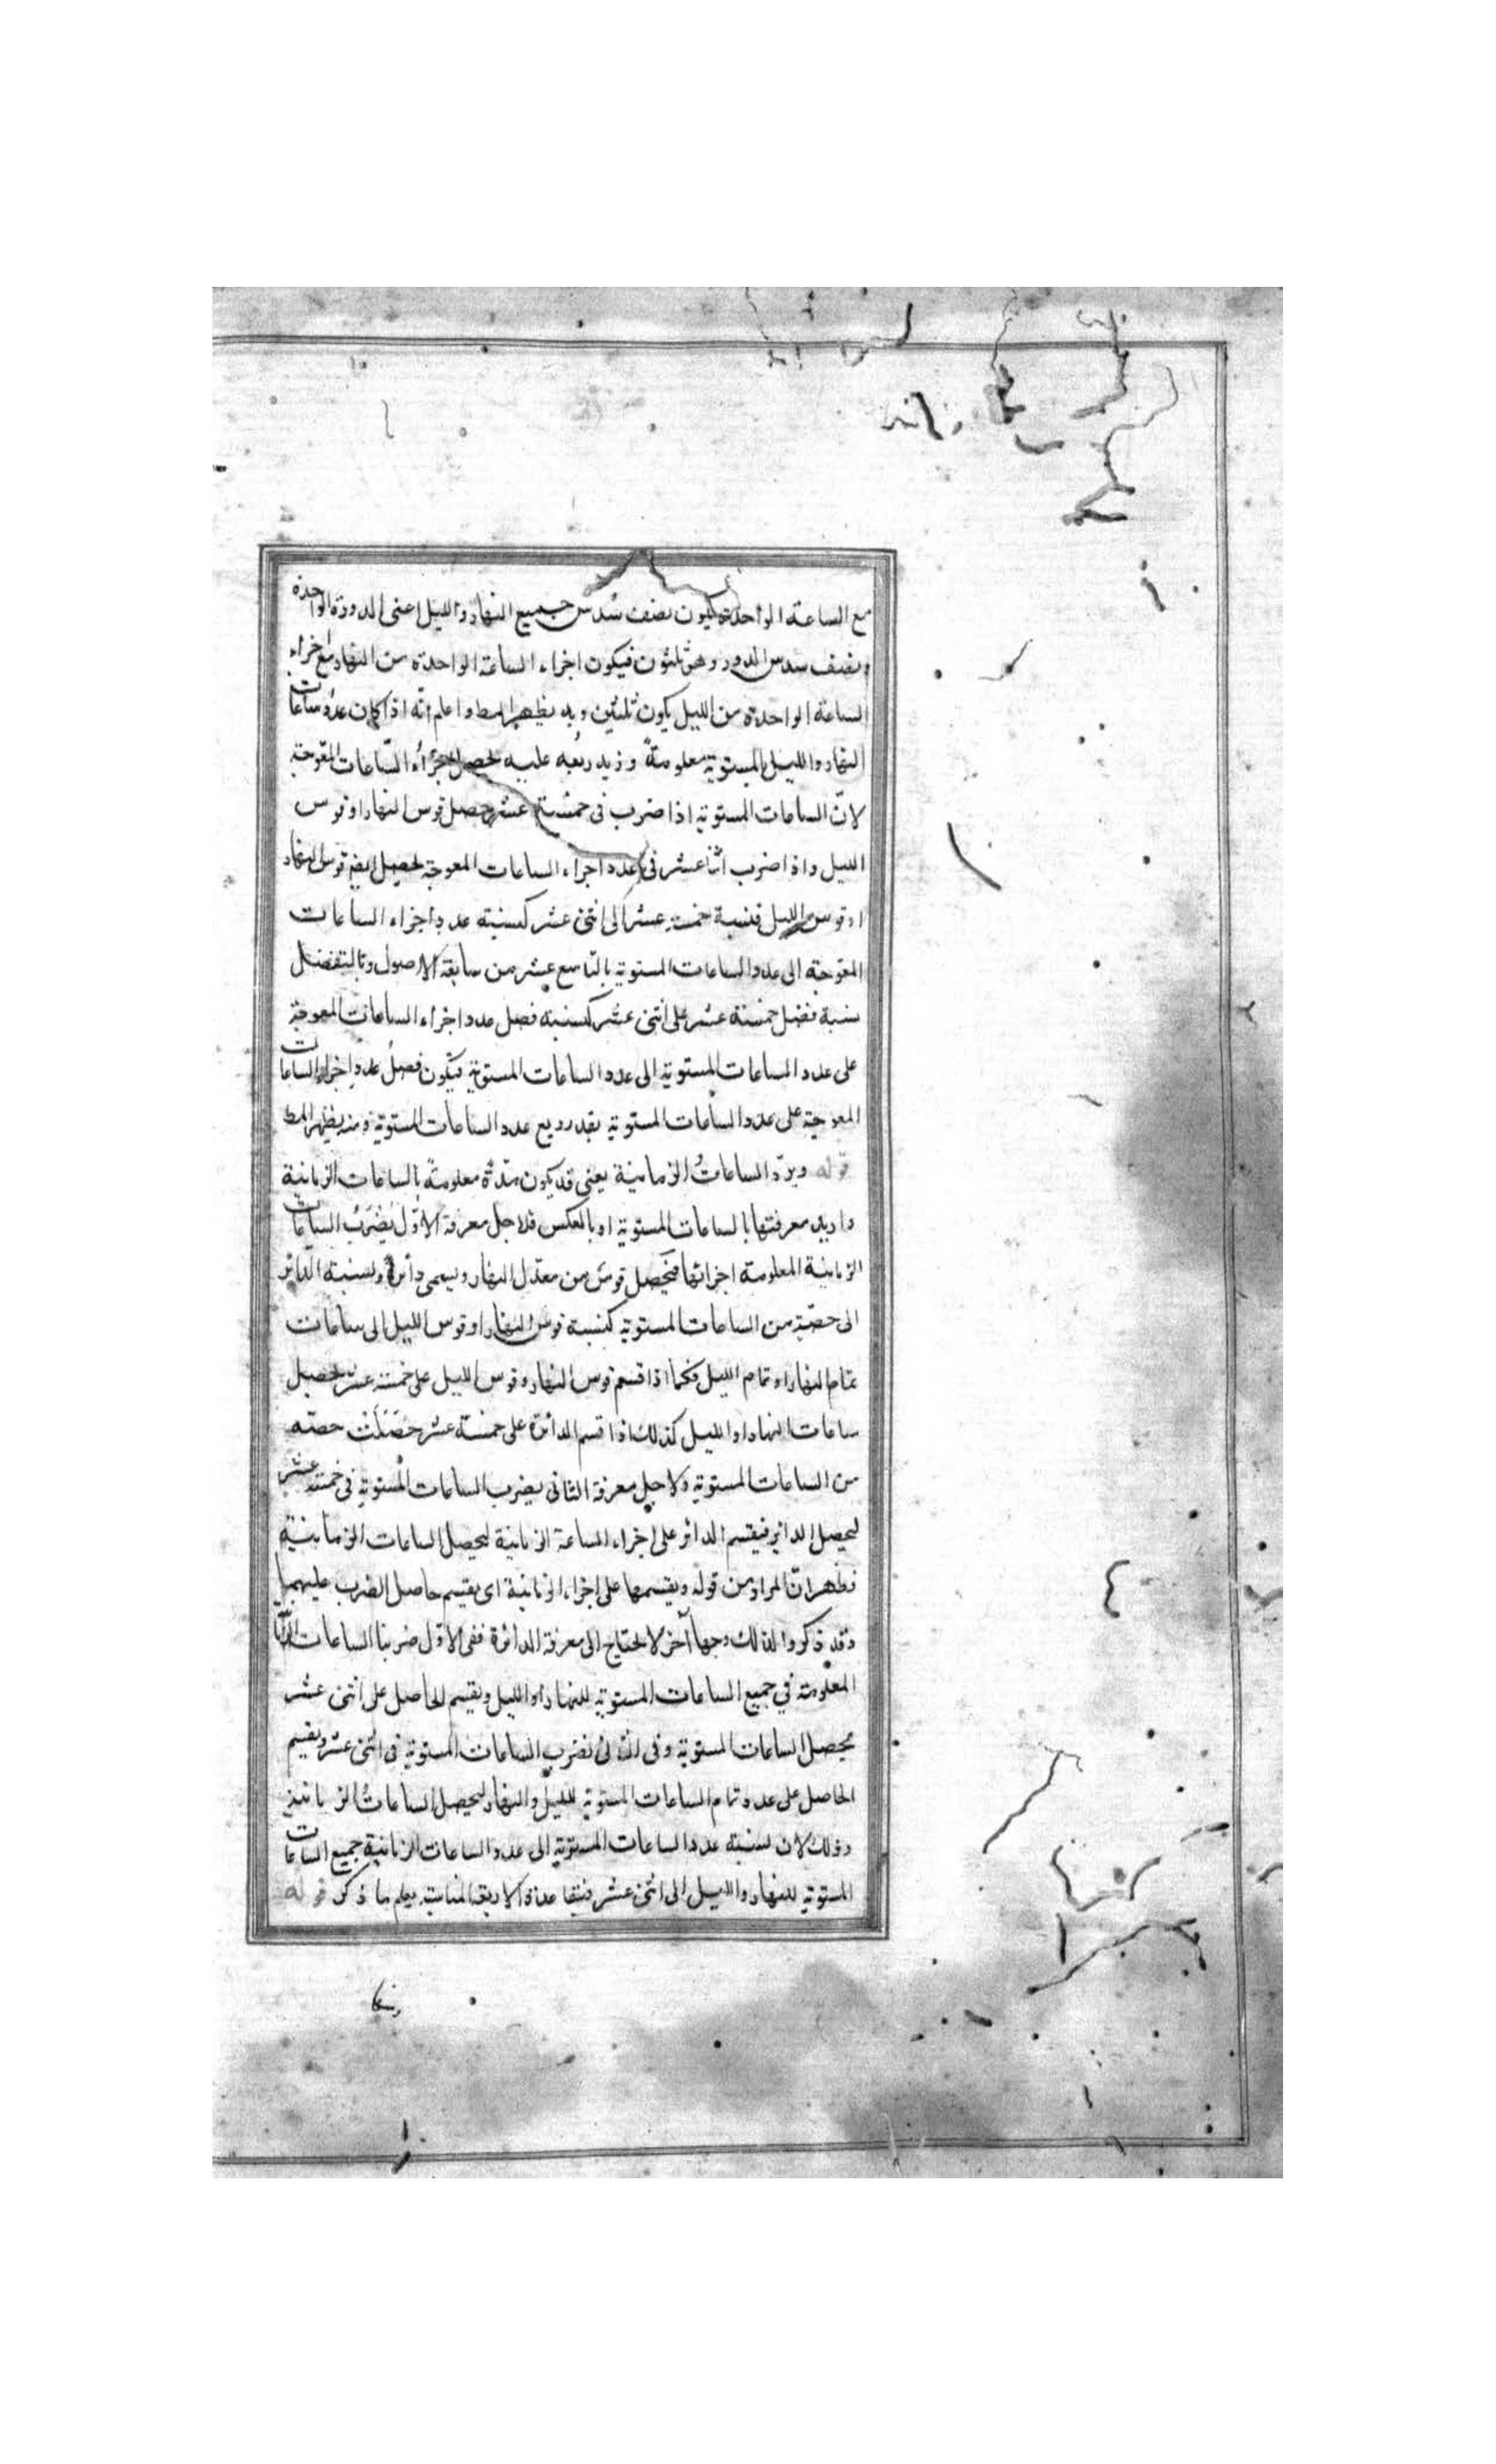 مع الساعة الواحدة يكون نصف سُدس جميع النهار والليل اعنى الدورة الواحدة
ونصف سدس الدور وهى ثلثون فيكون اجزاء الساعة الواحدة من النهار مع اجزاء
الساعة الواحدة من الليل يكون ثلثين وبه يظهر المط واعلم انّه اذا كان عدد ساعات
النهار والليل المستوية معلومةً وزيد ربعُه عليه يحصل اجزاُء السّاعات المعوّجة
لانّ الساعات المستوية اذا ضرب فى خمسة عشر حصل قوس النهار او قوس
الليل واذا ضرب اثنا عشر فى عدد اجزاء الساعات المعوجة يحصل ايضا قوس النهار
او قوس الليل فنسبة خمسة عشر الى اثنى عشر كنسبة عدد اجزاء الساعات
المعوّجة الى عدد الساعات المستوية بالتاسع عشر من سابعة الاصول وبالتفضيل
نسبة فضل خمسة عشر على اثنى عشر كنسبة فضل عدد اجزاء الساعات المعوجة
على عدد الساعات المستوية الى عدد الساعات المستوية فيكون فضلُ عدد اجزاء الساعات
المعوجة على عدد الساعات المستوية بقدر ربع عدد الساعات المستوية ومنه يظهر المط
قوله ويردّ الساعاتُ الزمانية يعنى قد يكون مدّةٌ معلومةً بالساعات الزمانية
واريد معرفتها بالساعات المستوية او بالعكس فلاجل معرفة الاوّل يُضرَبُ الساعات
الزمانية المعلومة اجزائها فيحصل قوسٌ من معدّل النهار ويسمى دائراً ونسبة الدائر
الى حصّته من الساعات المستوية كنسبة قوس النهار او قوس الليل الى ساعات
تمام النهار او تمام الليل فكما اذا قسم قوس النهار وقوس الليل على خمسة عشر يحصل
ساعات النهار او الليل كذلك اذا قسم الدائرة على خمسة عشر حَصَلَتْ حصته
من الساعات المستوية ولاجل معرفة الثانى يضرب الساعات المستوية فى خمسة عشر
ليحصل الدائر فيقسم الدائر على اجزاء الساعة الزمانية ليحصل الساعات الزمانية
فظهر انّ المراد من قوله ويقسمها على اجزاء الزمانية اى يقسم حاصل الضرب عليهما
وقد ذكروا لذلك وجها آخر لا يحتاج الى معرفة الدائرة ففى الاوّل ضربنا الساعات
المعلومة في جميع الساعات المستوية للنهار او الليل ويقسم الحاصل على اثنى عشر
يحصل الساعات المستوية وفى الثانى نضرب الساعات المستوية فى اثنى عشر ويقسم
الحاصل على عدد تمام الساعات المستوية لليل والنهار ليحصل الساعاتُ الزمانية
وذلك لان نسبة عدد الساعات المستوية الى عدد الساعات الزمانية جميع الساعات
المستوية للنهار والليل الى اثنى عشر الاربعة المناسبة يعلم ما ذكر قوله